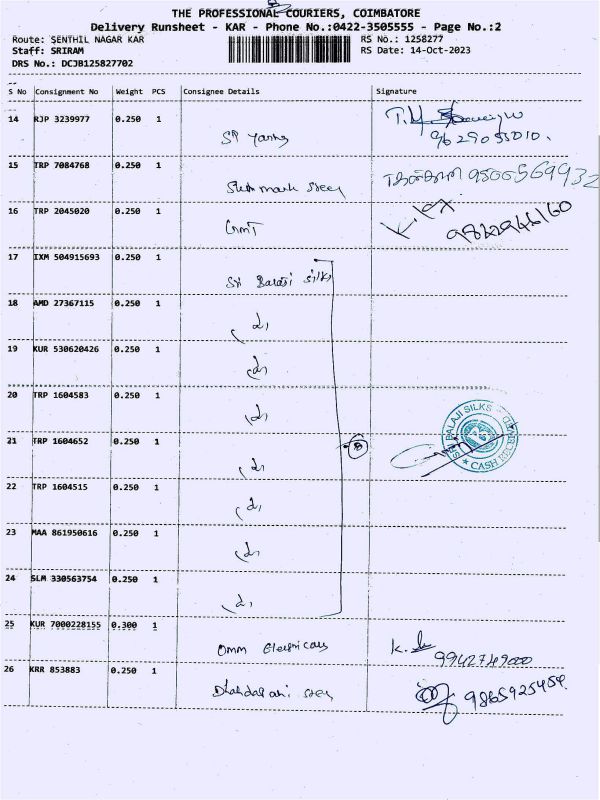 THE PROFESSIONAL COURIERS, COIMBATORE
Delivery Runsheet - KAR - Phone No.:0422-3505555 - Page No.:2
Route: SENTHIL NAGAR KAR RS No.: 1258277
Staff: SRIRAM RS Date: 14-Oct-2023
DRS No.: DCJB125827702
S No Consignment No Weight PCS Consignee Details Signature
14 RJP 3239977 0.250 1
SP
9629055010.
15 TRP 7084768 0.250 1
9500569932
16 TRP 2045020 0.250 1
17 IXM 504915693 0.250 1
Sri Balaji Silks
18 AMD 27367115 0.250 1
19 KUR 530620426 0.250 1
20 TRP 1604583 0.250 1
SRI BALAJI SILKS
21 TRP 1604652 0.250 1
8
★ CASH RECEIVED ★
22 TRP 1604515 0.250 1
23 MAA 861950616 0.250 1
24 SLM 330563754 0.250 1
25 KUR 7000228155 0.300 1
Omm Electricals
9942749000
26 KRR 853883 0.250 1
9865925454.